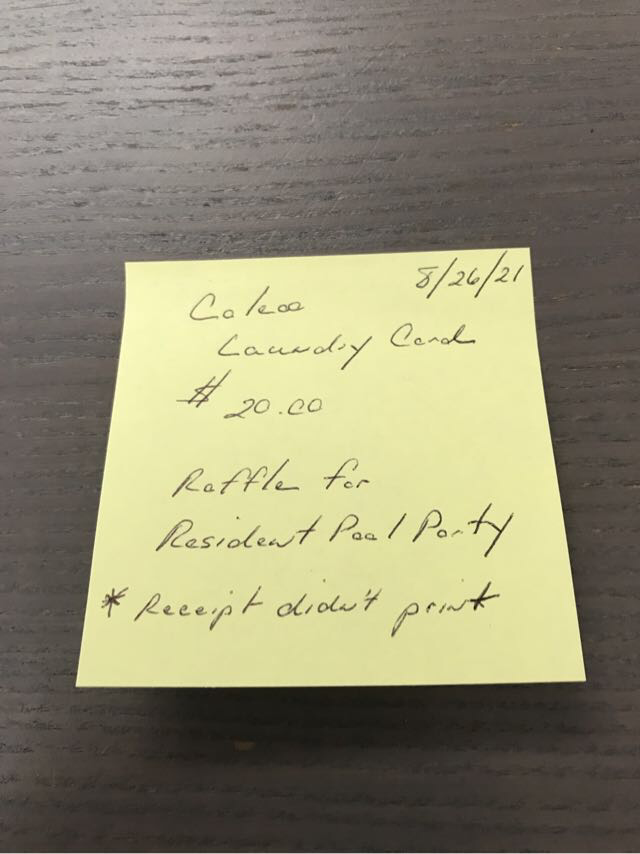 8/26/21
Laundry Card
$ 20.00
Raffle for
Resident Pool Party
* Receipt didn't print